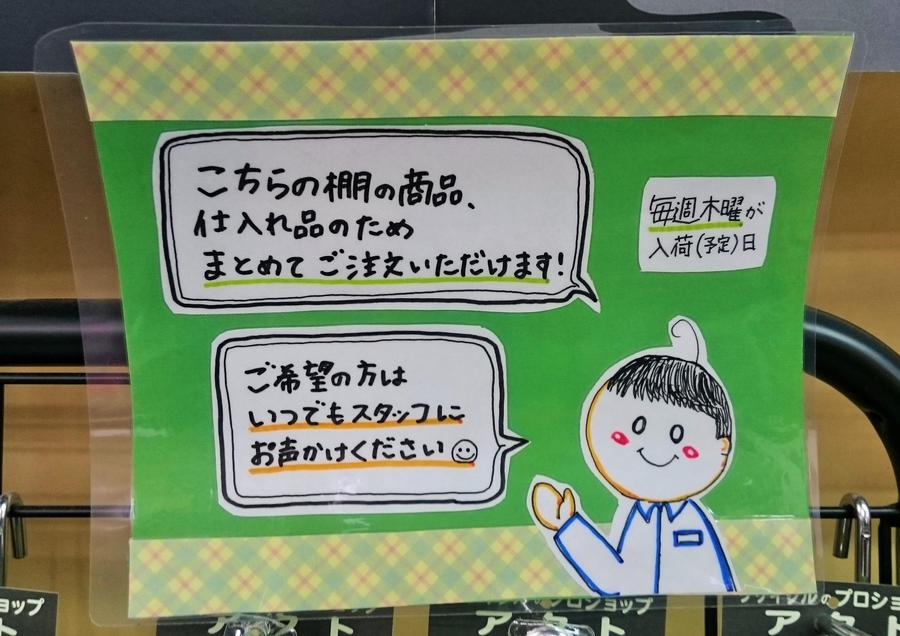 こちらの棚の商品、
仕入れ品のため
まとめてご注文いただけます!
毎週木曜が
入荷(予定)日
ご希望の方は
いつでもスタッフに
お声かけください
プロショップ
のプロショ